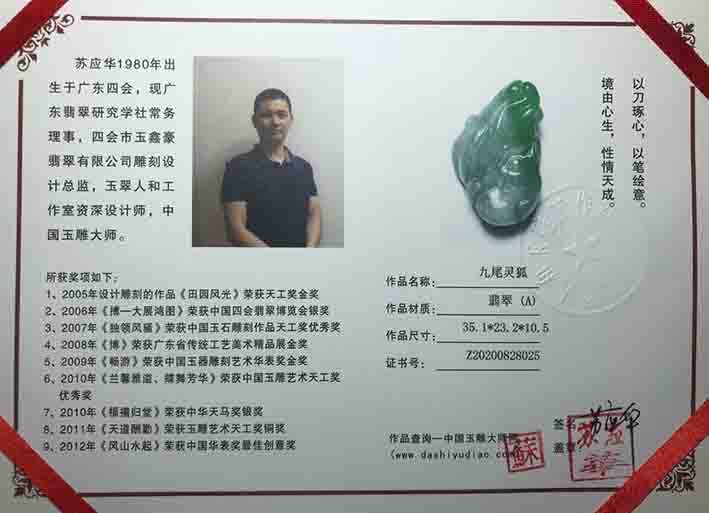 苏应华1980年出
生于广东四会，现广
东翡翠研究学社常务
理事，四会市玉鑫豪
翡翠有限公司雕刻设
计总监，玉翠人和工
作室资深设计师，中
国玉雕大师。
以刀琢心，以笔绘意。
境由心生，性情天成。
所获奖项如下：
1、2005年设计雕刻的作品《田园风光》荣获天工奖金奖
2、2006年《搏一大展鸿图》荣获中国四会翡翠博览会银奖
3、2007年《独领风骚》荣获中国玉石雕刻作品天工奖优秀奖
4、2008年《博》荣获广东省传统工艺美术精品展金奖
5、2009年《畅游》荣获中国玉器雕刻艺术华表奖金奖
6、2010年《兰馨雅逗、蝶舞芳华》荣获中国玉雕艺术天工奖
优秀奖
7、2010年《福福归堂》荣获中华天马奖银奖
8、2011年《天道酬勤》荣获玉雕艺术天工奖铜奖
9、2012年《风山水起》荣获中国华表奖最佳创意奖
作品名称：九尾灵狐
作品材质：翡翠（A）
作品尺寸：35.1*23.2*10.5
证书号：Z20200828025
签名
苏应华
盖章
作品查询一中国玉雕大师网
(www.dashiyudiao.com)
蘇
苏应华